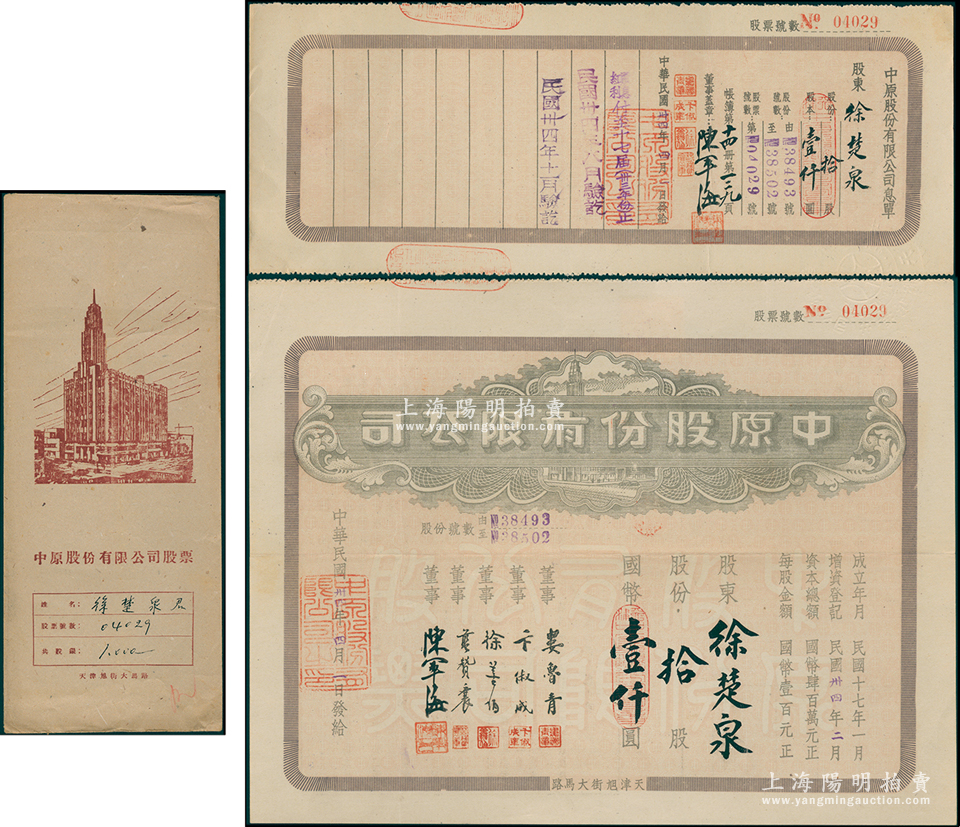 中原股份有限公司股票
姓名：徐楚泉君
股票號數：04029
共股歀：1,000
天津旭街大馬路
股票號數 Nº 04029
中原股份有限公司息單
股東 徐楚泉
股份 拾 股
股本 壹仟 圓
股份號數：由 38493 號
至 38502 號
股票號數：第 04029 號
帳簿第 十四 冊第 頁
董事蓋章：陳軍海
中華民國 卅四年 四月 日發給
民國卅四年 月驗訖
民國卅四年十一月驗訖
股票號數 Nº 04029
中原股份有限公司
股份號數 由 38493
至 38502
成立年月 民國十七年一月
增資登記 民國卅四年二月
資本總額 國幣肆百萬元正
每股金額 國幣壹百元正
股東 徐楚泉
股份 拾 股
國幣 壹仟 圓
董事
董事
董事
董事
董事 陳軍海
中華民國 卅四年 四月 日發給
天津旭街大馬路
上海陽明拍賣
www.yangmingauction.com
上海陽明拍賣
www.yangmingauction.com